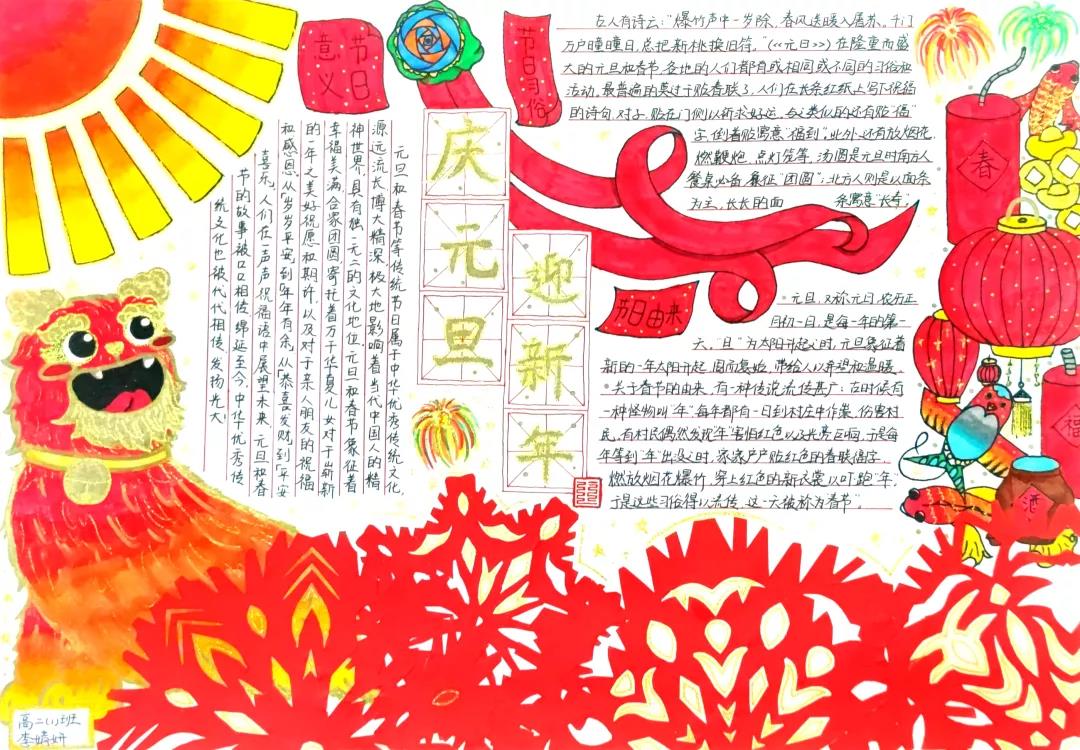 节日
意义
庆元旦
迎新年
元旦和春节等传统节日属于中华优秀传统文化,
源远流长博大精深,极大地影响着当代中国人的精
神世界,具有独一无二的文化地位,元旦和春节象征着
幸福美满,合家团圆,寄托着万千华夏儿女对于崭新
的一年之美好祝愿和期许,以及对于亲人朋友的祝福
和感恩。从“岁岁平安”到“年年有余”,从“恭喜发财”到“平安
喜乐”,人们在一声声祝福语中展望未来,元旦和春
节的故事被口口相传,绵延至今,中华优秀传
统文化也被代代相传,发扬光大
节日习俗
古人有诗云:“爆竹声中一岁除,春风送暖入屠苏。千门
万户曈曈日,总把新桃换旧符。”(《元日》)在隆重而盛
大的元旦和春节,各地的人们都有或相同或不同的习俗和
活动,最普遍的莫过于贴春联了,人们在长条红纸上写下祝福
的诗句,对子,贴在门侧以祈求好运,与之类似的还有贴“福”
字,倒着贴寓意“福到”。此外,还有放烟花,
燃鞭炮,点灯笼等,汤圆是元旦时南方人
餐桌必备,象征“团圆”;北方人则是以面条
为主,长长的面条寓意“长寿”。
节日由来
元旦,又称元日,农历正
月初一日,是每一年的第一
天,“旦”为太阳升起之时,元旦象征着
新的一年太阳升起,周而复始,带给人以希望和温暖。
关于春节的由来,有一种传说流传甚广:古时候有
一种怪物叫“年”每年都有一日到村庄中作祟,伤害村
民,有村民偶然发现“年”害怕红色以及光亮巨响,于是每
年等到“年”出没之时,家家户户贴红色的春联福字,
燃放烟花爆竹,穿上红色的新衣裳以吓跑“年”,
于是这些习俗得以流传,这一天被称为春节”。
春
福
酒
高二(1)班
李婧妍